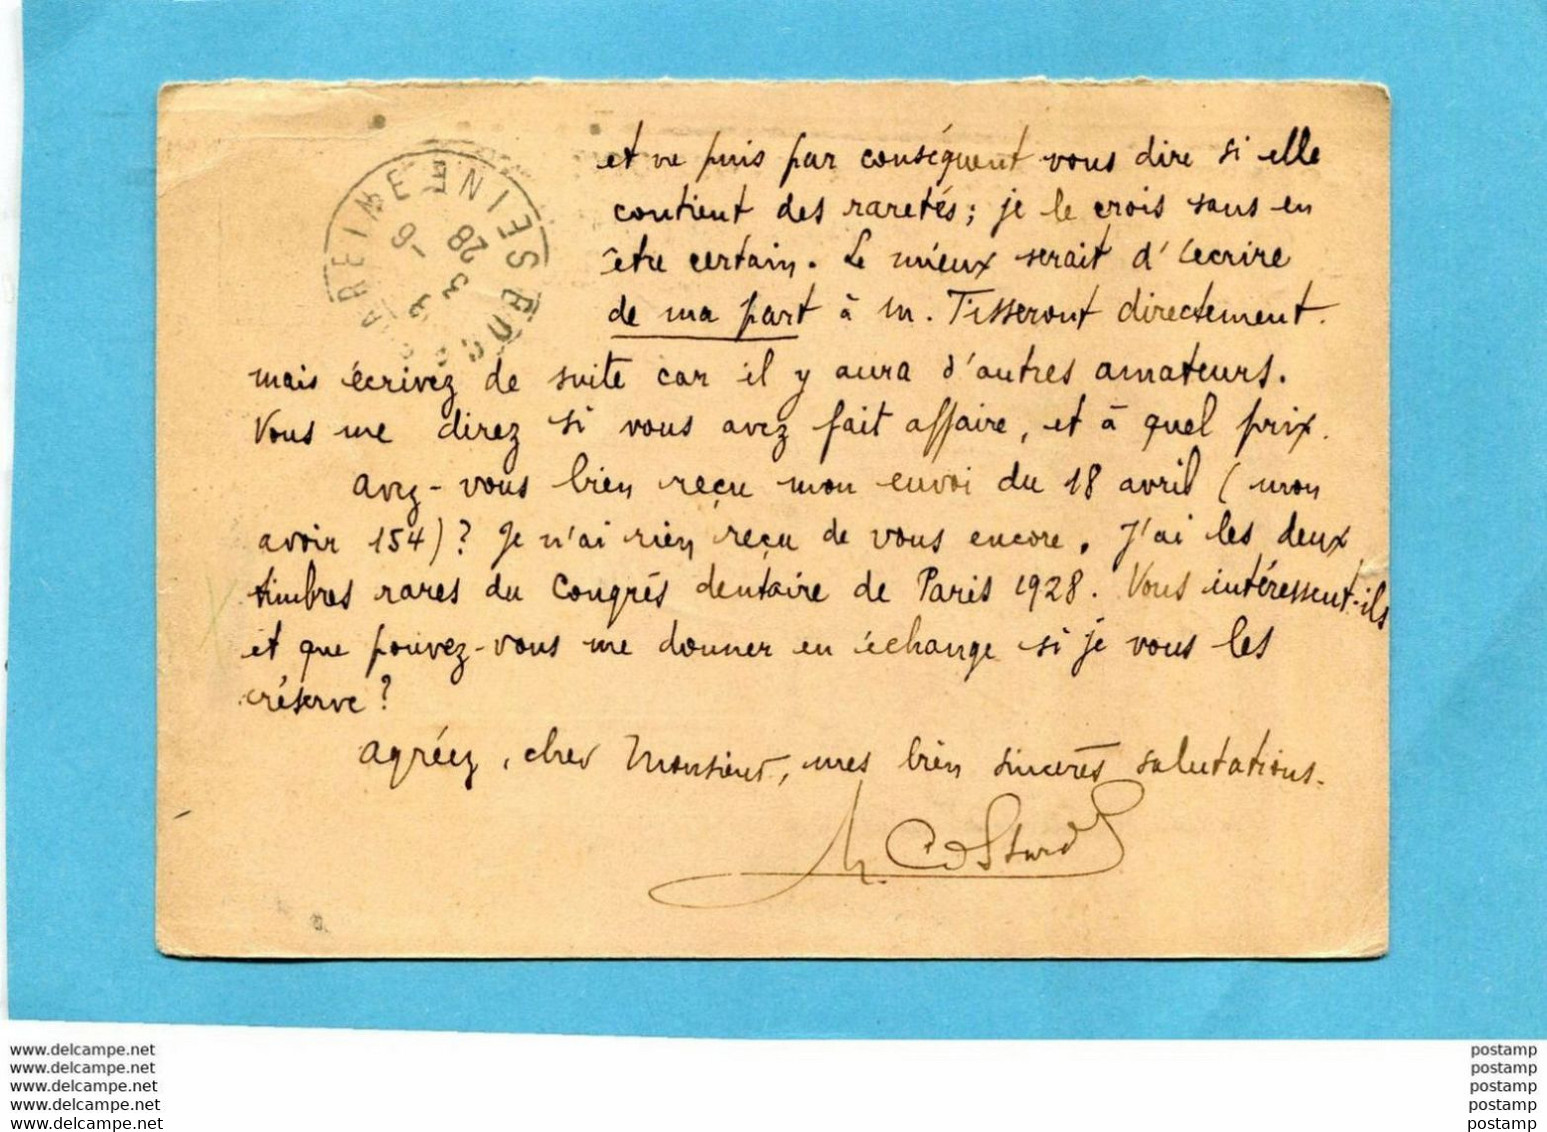 et ne puis par conséquent vous dire si elle
contient des raretés; je le crois sans en
être certain. Le mieux serait d'écrire
de ma part à M. Tisseront directement.
mais écrivez de suite car il y aura d'autres amateurs.
Vous me direz si vous avez fait affaire, et à quel prix.
Avez-vous bien reçu mon envoi du 18 avril (mon
avoir 154)? Je n'ai rien reçu de vous encore. J'ai les deux
timbres rares du Congrès dentaire de Paris 1928. Vous intéressent-ils
et que pouvez-vous me donner en échange si je vous les
réserve?
Agréez, cher Monsieur, mes bien sincères salutations.
SEINE
28
www.delcampe.net
www.delcampe.net
www.delcampe.net
www.delcampe.net
www.delcampe.net
postamp
postamp
postamp
postamp
postamp